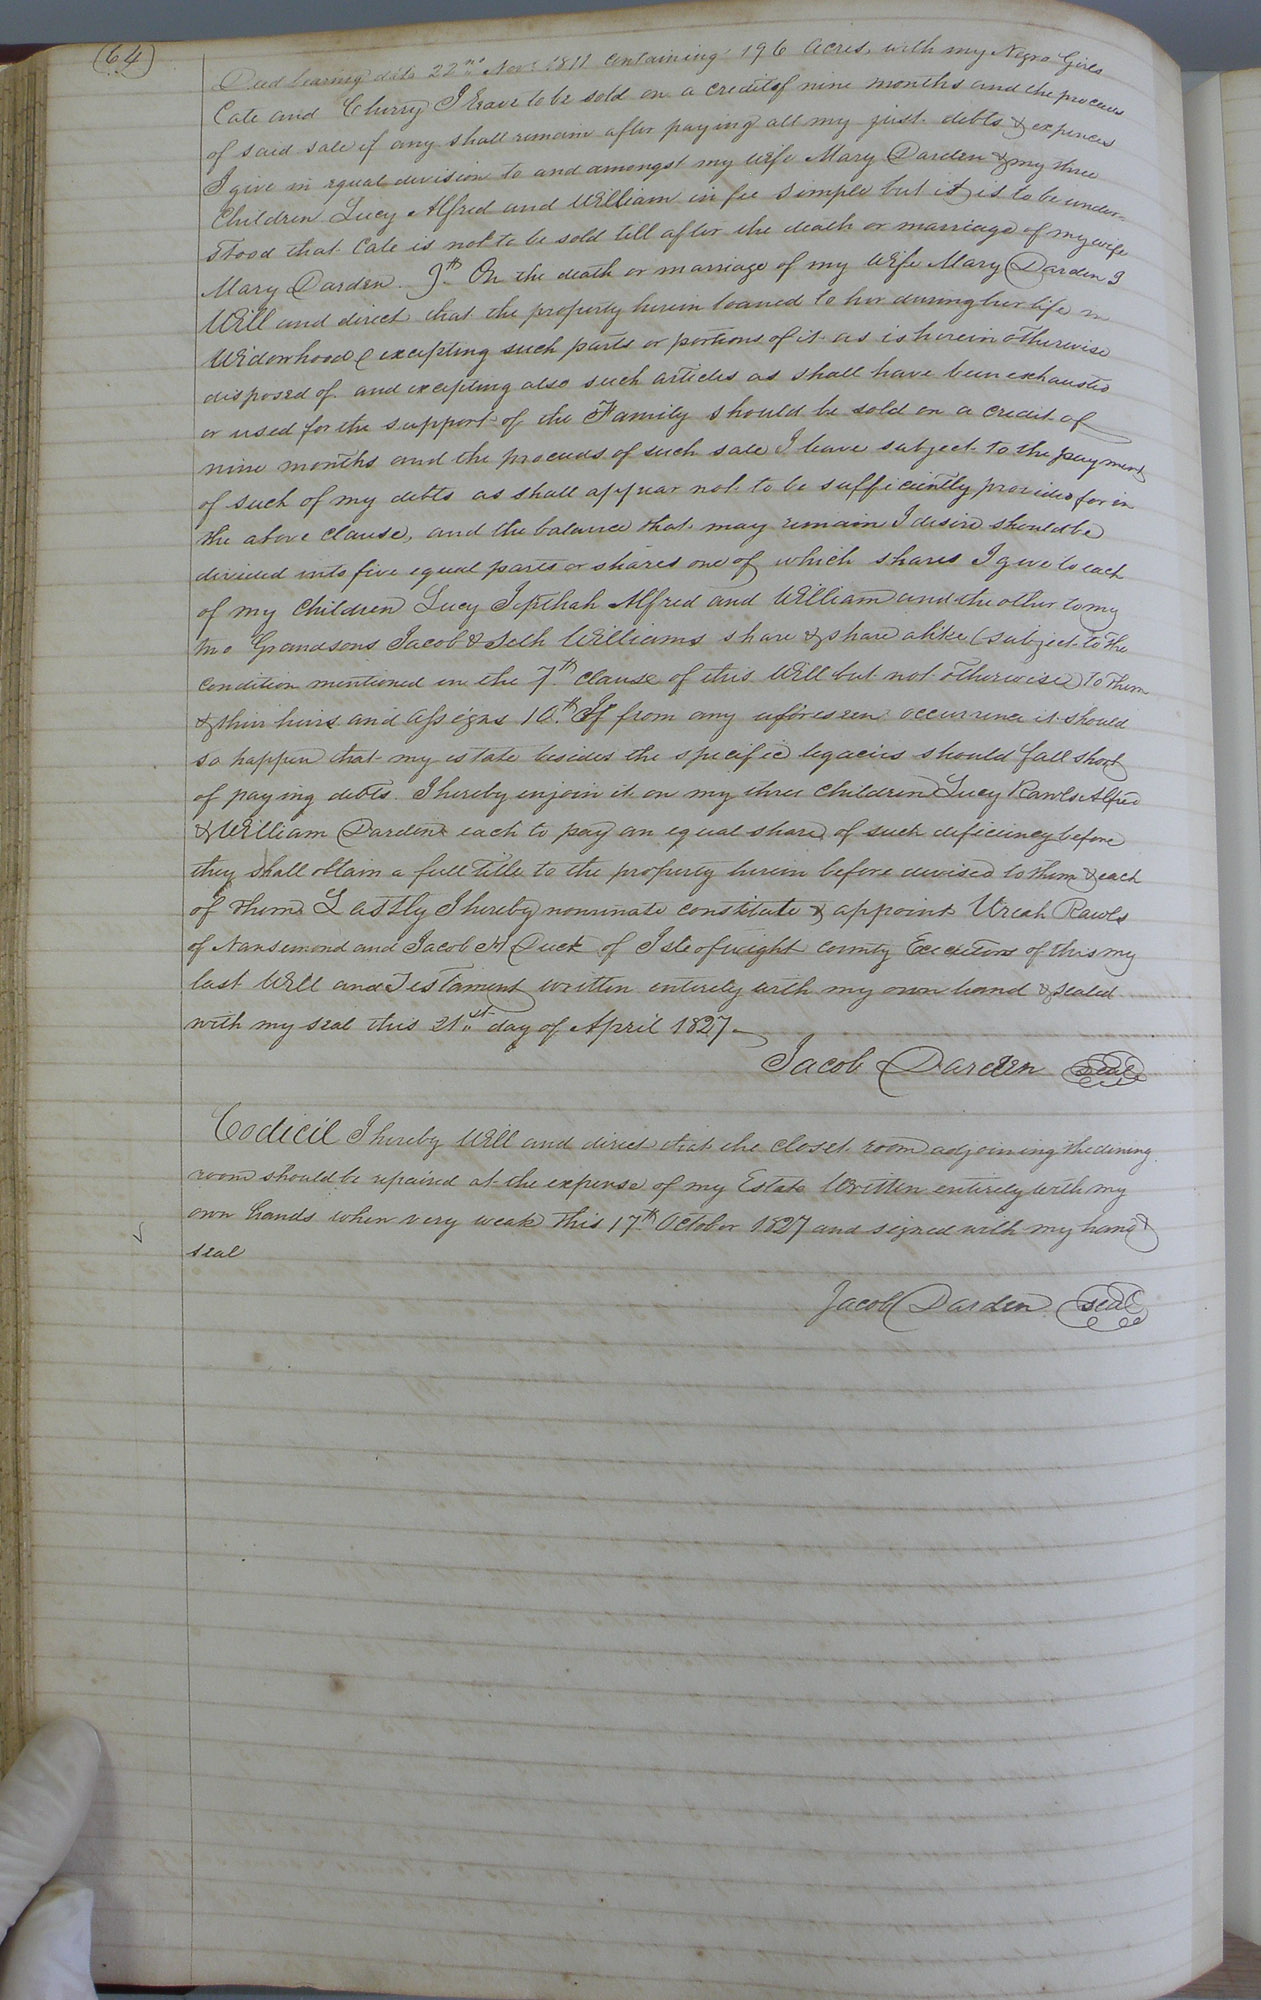 64
Deed bearing date 22nd Novr 1811 containing 196 acres, with my Negro Girls
Cate and Cherry I leave to be sold on a credit of nine months and the proceeds
of said sale if any shall remain after paying all my just debts & expences
I give in equal division to and amongst my wife Mary Darden & my three
Children Lucy Alfred and William in fee simple but it is to be under-
stood that Cate is not to be sold till after the death or marriage of my wife
Mary Darden. 9th On the death or marriage of my wife Mary Darden I
Will and direct that the property herein loaned to her during her life or
Widowhood (excepting such parts or portions of it as is herein otherwise
disposed of and excepting also such articles as shall have been exhausted
or used for the support of the Family should be sold on a credit of
nine months and the proceeds of such sale I leave subject to the payment
of such of my debts as shall appear not to be sufficiently provided for in
the above clause, and the balance that may remain I desire should be
divided into five equal parts or shares one of which shares I give to each
of my Children Lucy Jepthah Alfred and William and the other to my
two Grandsons Jacob & Seth Williams share & share alike (subject to the
condition mentioned in the 7th clause of this Will but not otherwise) to them
& their heirs and assigns 10th If from any unforeseen occurrence it should
so happen that my estate besides the specific legacies should fall short
of paying debts I hereby enjoin it on my three children Lucy Rawls Alfred
& William Darden each to pay an equal share of such deficiency before
they shall obtain a full title to the property herein before devised to them & each
of them Lastly I hereby nominate constitute & appoint Uriah Rawls
of Nansemond and Jacob H Duck of Isle of wight county Executors of this my
last Will and Testament written entirely with my own hand & sealed
with my seal this 21st day of April 1827.
Jacob Darden seal
Codicil I hereby Will and direct that the closet room adjoining the dining
room should be repaired at the expense of my Estate Written entirely with my
own hands when very weak this 17th October 1827 and signed with my hand &
seal
Jacob Darden seal